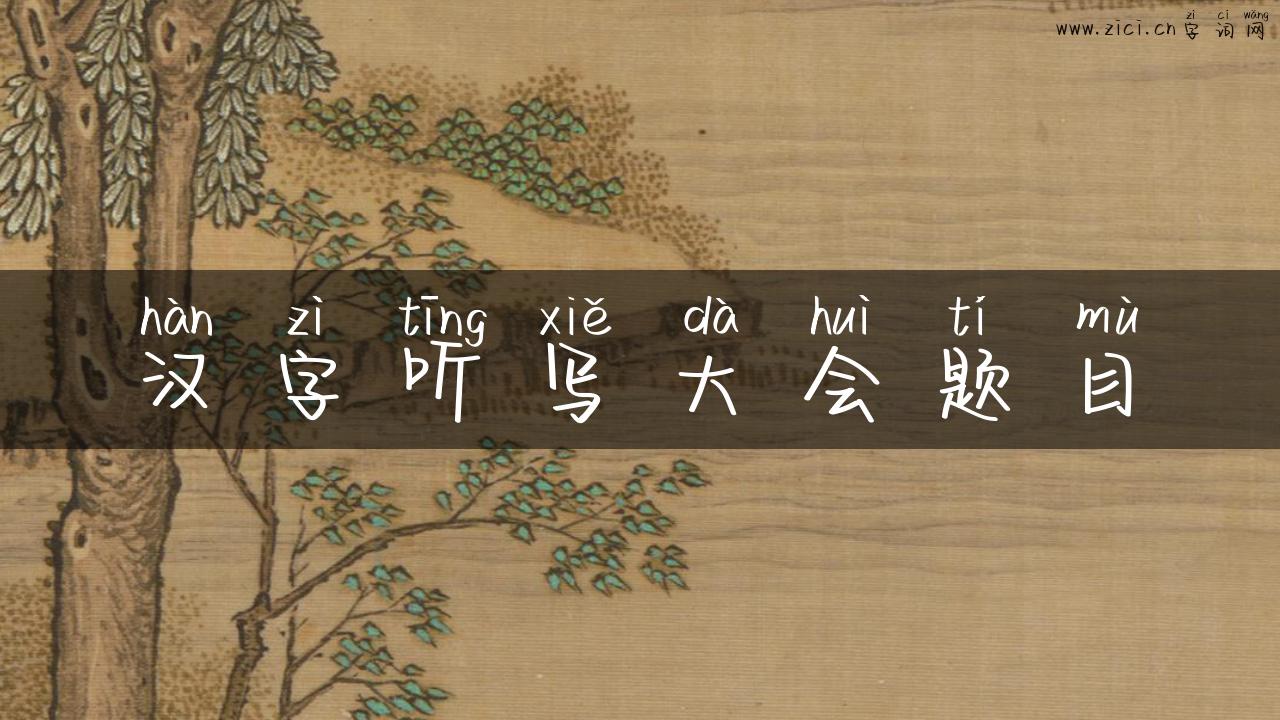 zì cí wǎng
www.zici.cn 字词网
hàn zì tīng xiě dà huì tí mù
汉字听写大会题目